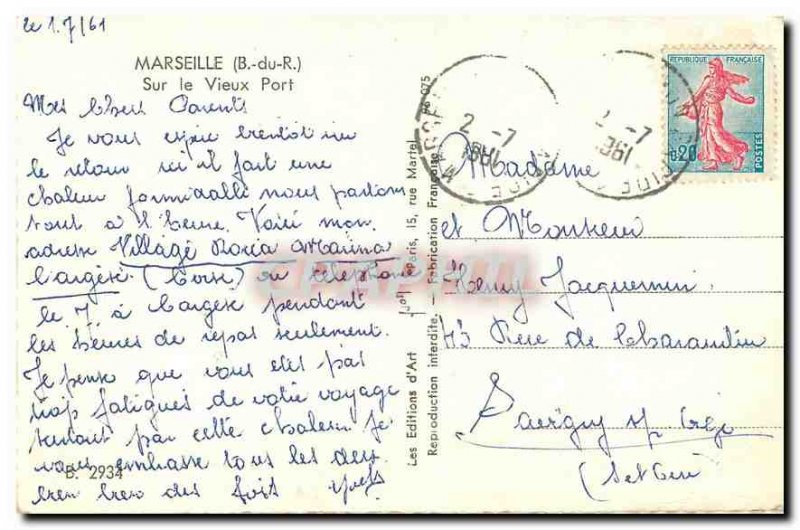 le 1.7/61
MARSEILLE (B.-du-R.)
Sur le Vieux Port
Mes Chers Parents
Je vous espère bientôt
le retour ici il fait une
chaleur formidable nous partons
tout à l'heure. Voici mon
adresse Village Roria Marina
Cargèse (Corse) ou téléphone
le 7 à Cargèse pendant
les heures de repas seulement.
Je pense que vous etes pas
trop fatigués de votre voyage
surtout par cette chaleur je
vous embrasse tous les deux
bien bien des fois Yves
B. 2934
Les Editions d'Art Yvon Paris, 15, rue Martel
Reproduction interdite. — Fabrication Française
2 -7
1961
2 -7
1961
REPUBLIQUE FRANÇAISE
0,20
POSTES
Madame
et Monsieur
Henry Jacquemin
43 Rue de Charaintru
Savigny s/ Orge
(Set Oise)